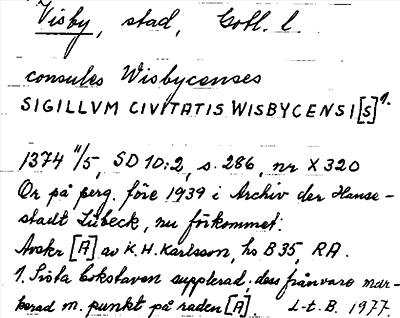 Visby, stad, Gotl. l.
consules Wisbycenses
SIGILLVM CIVITATIS WISBYCENSI[S]1.
1374 11/5, SD 10:2, s. 286, nr X 320
Or på perg. före 1939 i Archiv der Hanse-
stadt Lübeck, nu förkommet.
Avskr [A] av K.H. Karlsson, hs B35, RA.
1. Sista bokstaven supplerad; dess frånvaro mar-
kerad m. punkt på raden [A]. L-t. B. 1977.